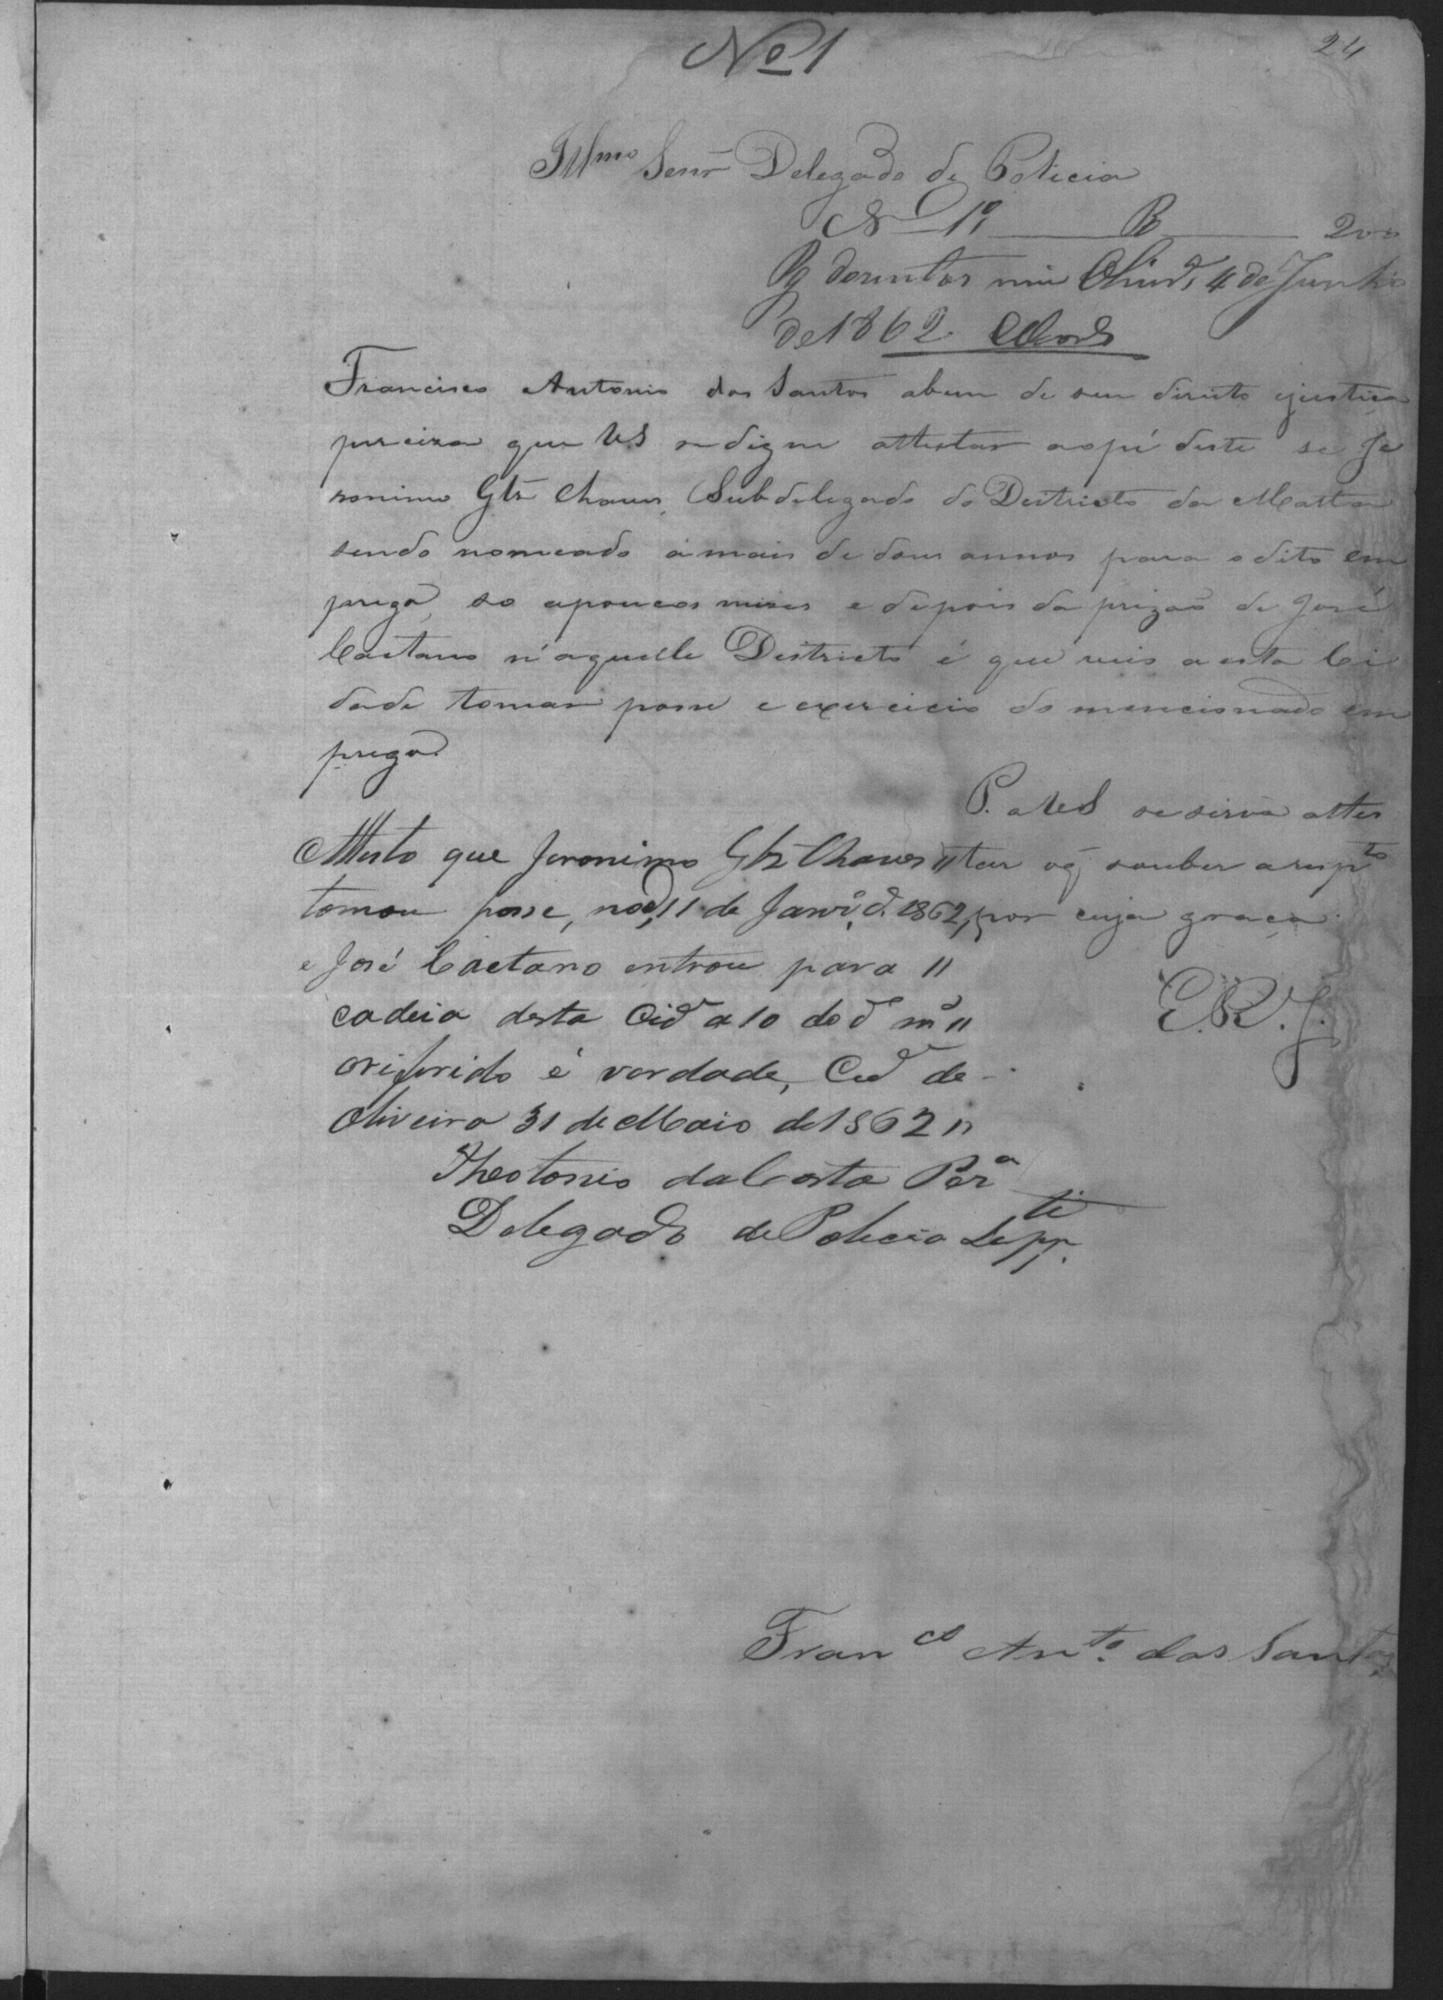 Nº 1
24
Illmo Senr Delegado de Policia
Nº 1º R 200
Pg duzentos reis Olivrª, 4 de Junho
de 1862.
Francisco Antonio dos Santos abem de seu direito ejustiça
preciza que VS se digne attestar aopé deste se Je
ronimo Glz Chaves, Subdelegado do Destricto da Matta
sendo nomeado á mais de dous annos para o dito em
prego, so apoucos mezes e depois da prizaõ de José
Caetano n'aquelle Destricto é que veis a esta Ci
dade tomar posse e exercicio do mencionado em
prego.
P. a VS se sirva attes
tar oq̃ souber a respto
por cuja graça
E. R. J.
Attesto que Jeronimo Glz Chaves //
tomou posse, no dº 11 de Janrº d. 1862,
e José Caetano entrou para //
cadeia desta Cidᵉ a 10 do dº mº //
oriferido é verdade, Cidᵉ de
Oliveira 31 de Maio de 1862 //
Theotonio da Costa Perª
Delegado de Policia Suppte.
Franco Anto. dos Santos